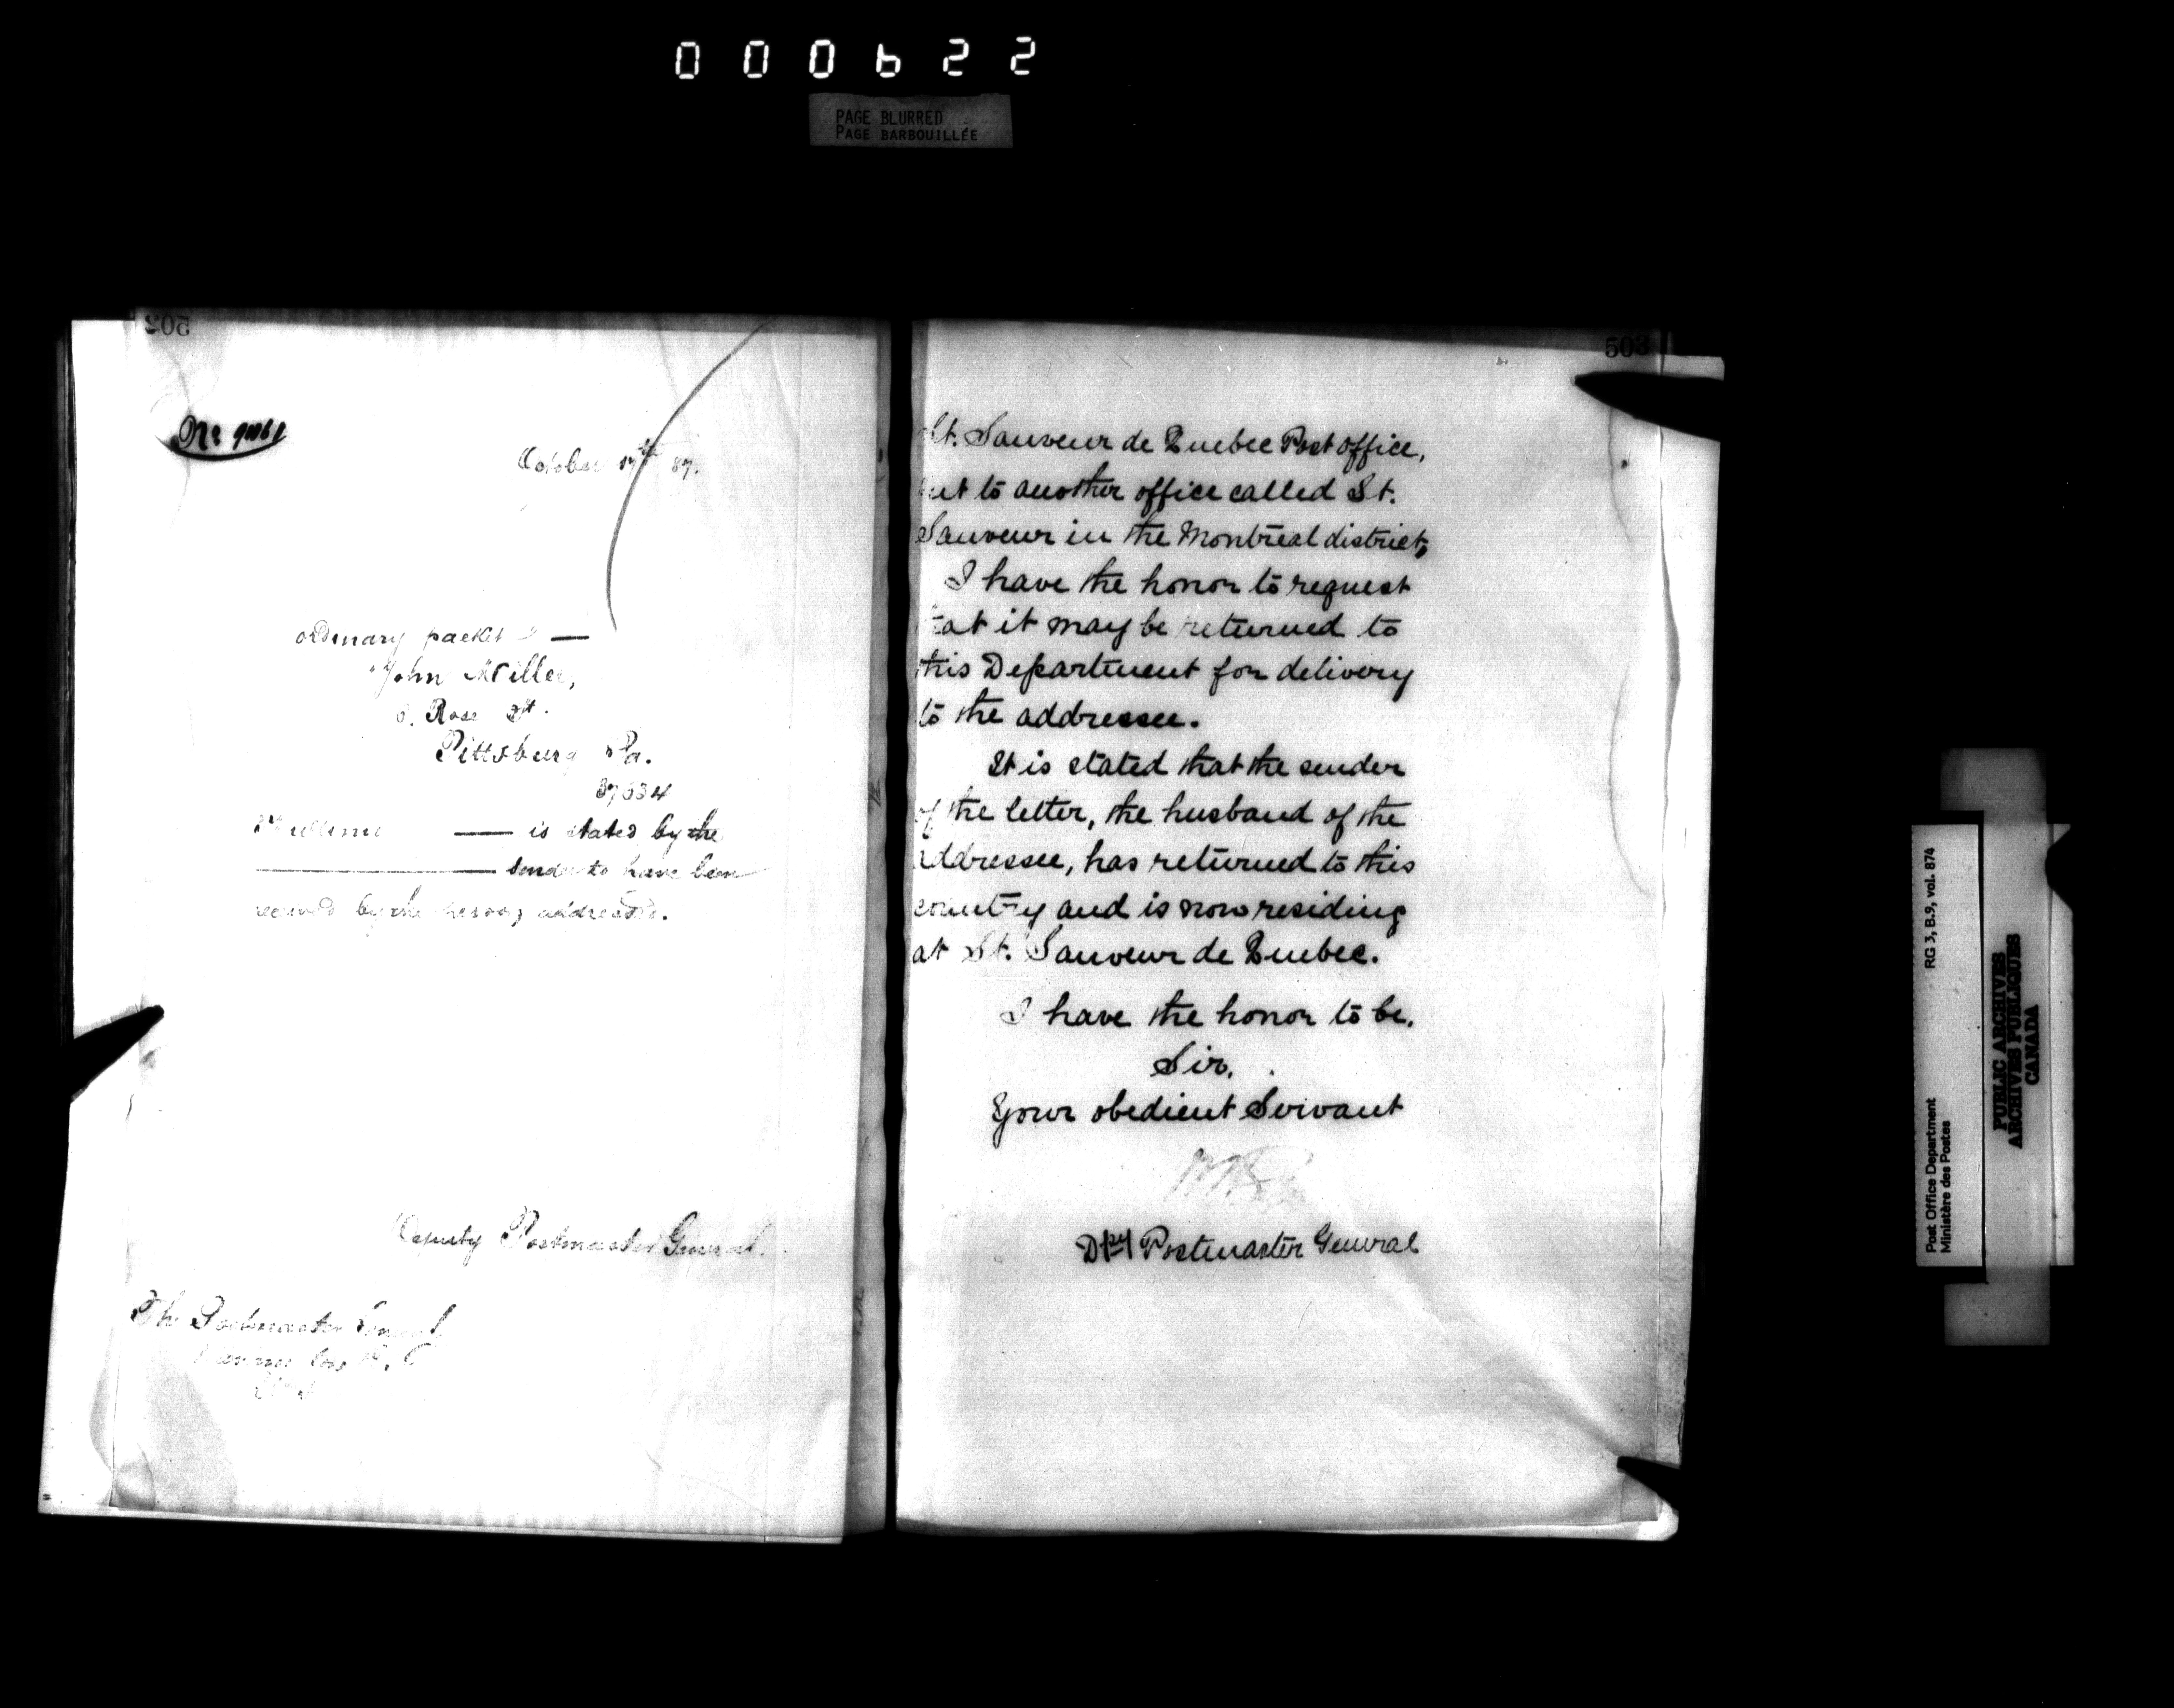 000622
PAGE BLURRED
PAGE BARBOUILLÉE
502
October 17th 87.
ordinary packet
John Miller,
6. Rose St.
Pittsburg Pa.
37634
is stated by the
sender to have been
received by the person addressed.
Deputy Postmaster General.
The Postmaster General
503
St. Sauveur de Quebec Post office,
but to another office called St.
Sauveur in the Montreal district,
I have the honor to request
that it may be returned to
this Department for delivery
to the addressee.
It is stated that the sender
of the letter, the husband of the
addressee, has returned to this
country and is now residing
at St. Sauveur de Quebec.
I have the honor to be,
Sir,
Your obedient Servant
Dpy Postmaster General
Post Office Department RG 3, B.9, vol. 874
Ministère des Postes
PUBLIC ARCHIVES
ARCHIVES PUBLIQUES
CANADA